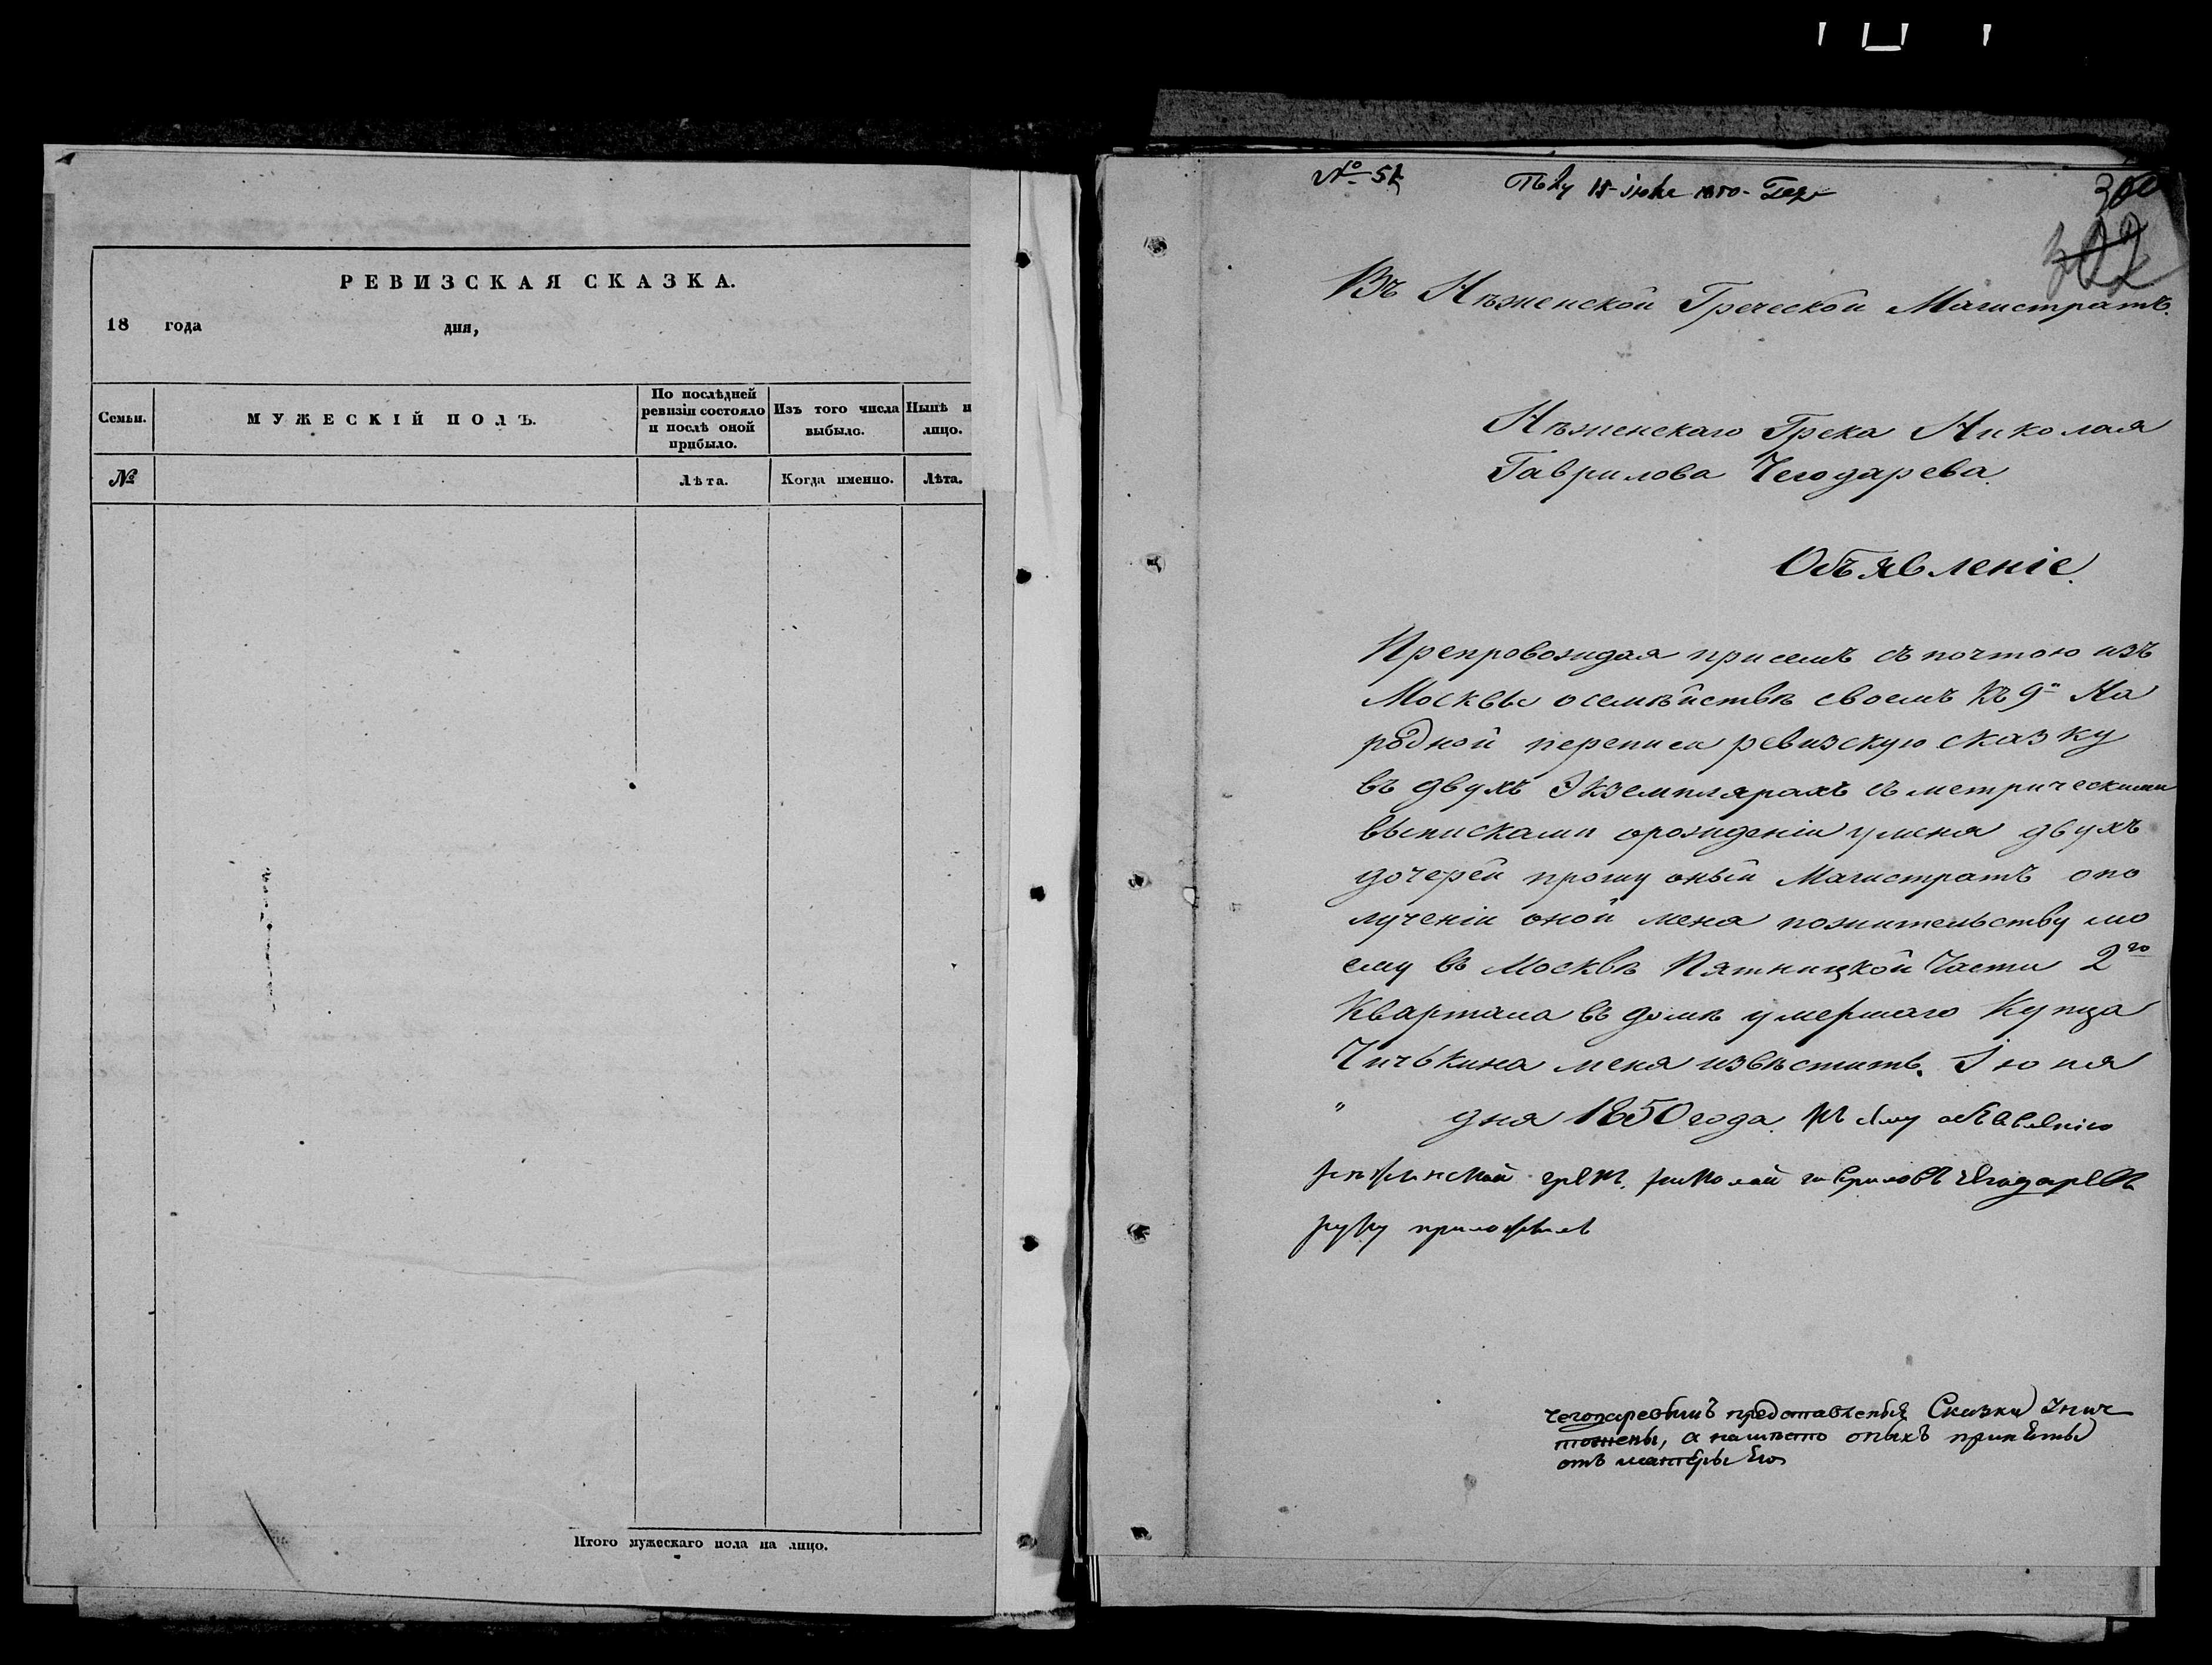 РЕВИЗСКАЯ СКАЗКА.
18 года дня,
Семьи.
МУЖЕСКІЙ ПОЛЪ.
По послѣдней
ревизіи состояло
и послѣ оной
прибыло.
Изъ того числа
выбыло.
Нынѣ н
лицо.
№
Лѣта.
Когда именно.
Лѣта.
Итого мужескаго пола на лицо.
№ 51
18 1850
300
302
Въ Нѣженской Греческой Магистратъ.
Нѣженскаго Грека Николая
Гаврилова Чегодарева
Объявленіе.
Препровождая при семъ съ почтою изъ
Москвы о семѣйствѣ своемъ къ 9й На
родной переписи ревизскую сказку
въ двухъ Экземплярахъ съ метрическими
выписками о рожденіи у меня двухъ
дочерей прошу оный Магистратъ о по
лученіи оной меня по жительству мо
ему въ Москвѣ Пятницкой Части 2го
Квартала въ домѣ умершаго Купца
Чичькина меня извѣстить. Іюня
" дня 1850 года. Къ сему объявленію
нѣжинской грекъ николай гавриловъ чегодаревъ
руку приложилъ
Чегодаревымъ представленыя Сказки Унич
тожены, а на мѣсто оныхъ принеты
отъ матеры Его